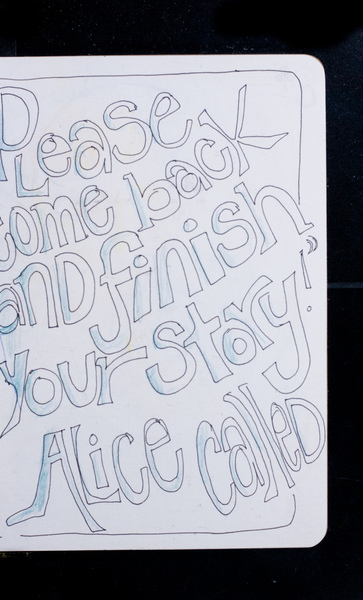 Please
come back
and finish
your story!"
Alice called